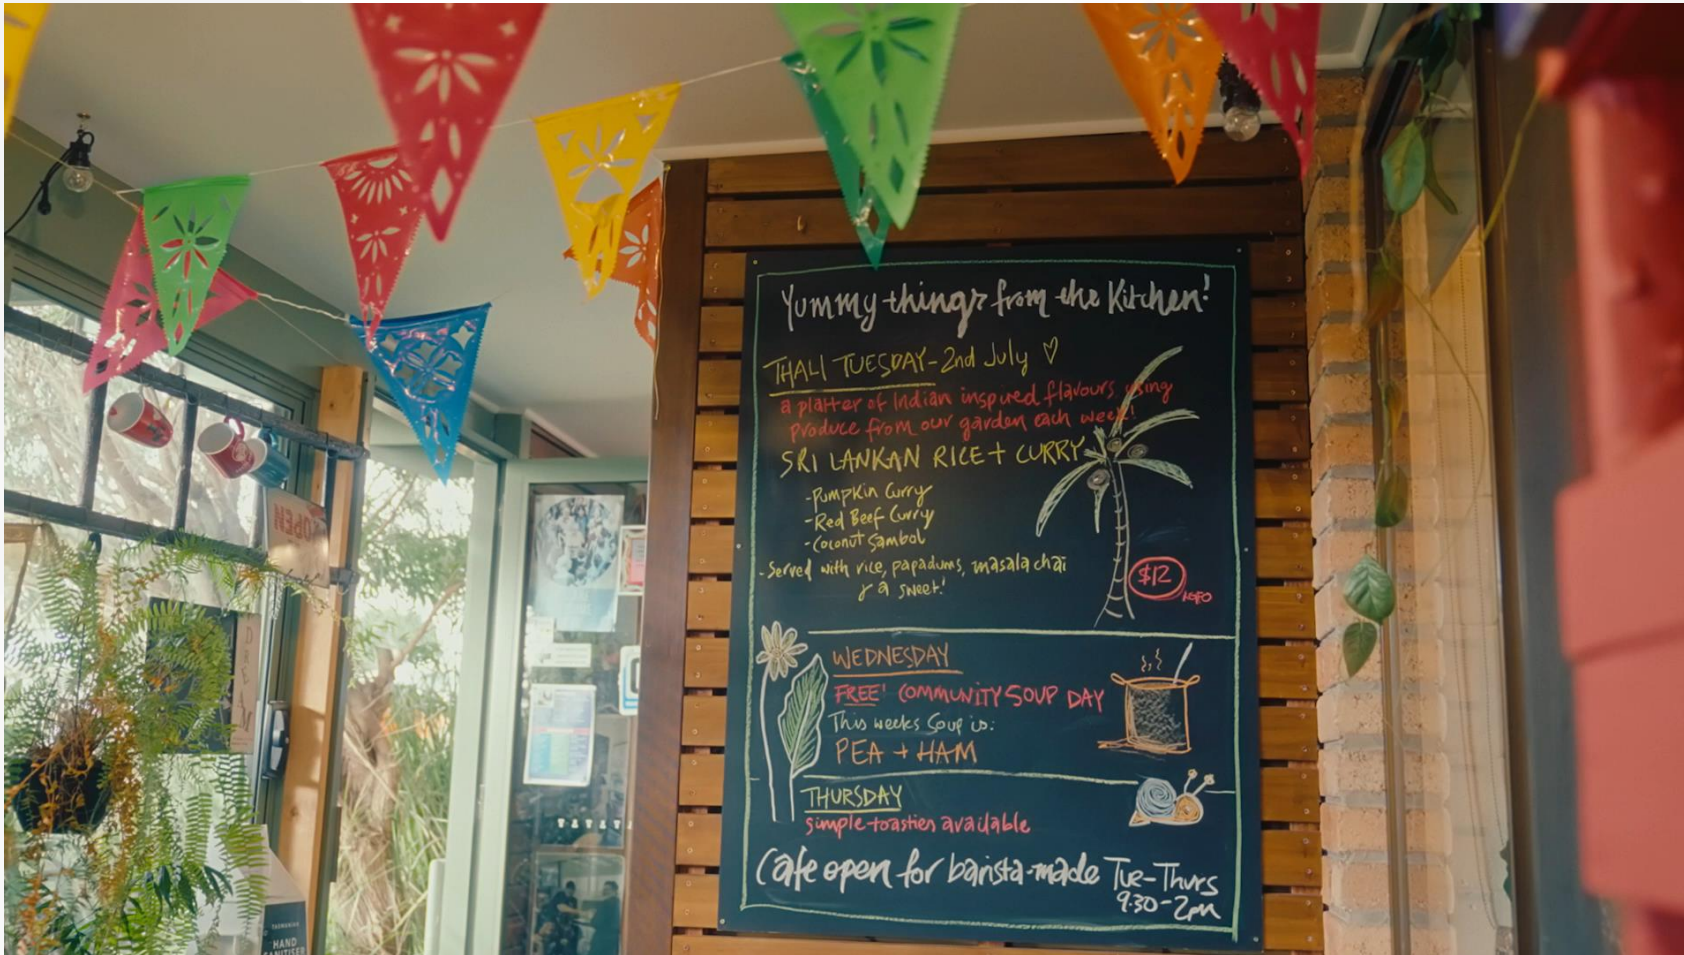 Yummy things from the Kitchen!
THALI TUESDAY - 2nd July
a platter of Indian inspired flavours using
produce from our garden each week!
SRI LANKAN RICE + CURRY
- Pumpkin Curry
- Red Beef Curry
- Coconut Sambol
- Served with rice, papadums, masala chai
& a sweet!
$12
WEDNESDAY
FREE! COMMUNITY SOUP DAY
This weeks Soup is:
PEA + HAM
THURSDAY
simple toasties available
Cafe open for barista-made Tue-Thurs
9.30-2pm
OPEN
DREAM
TASMANIAN
HAND
SANITISER